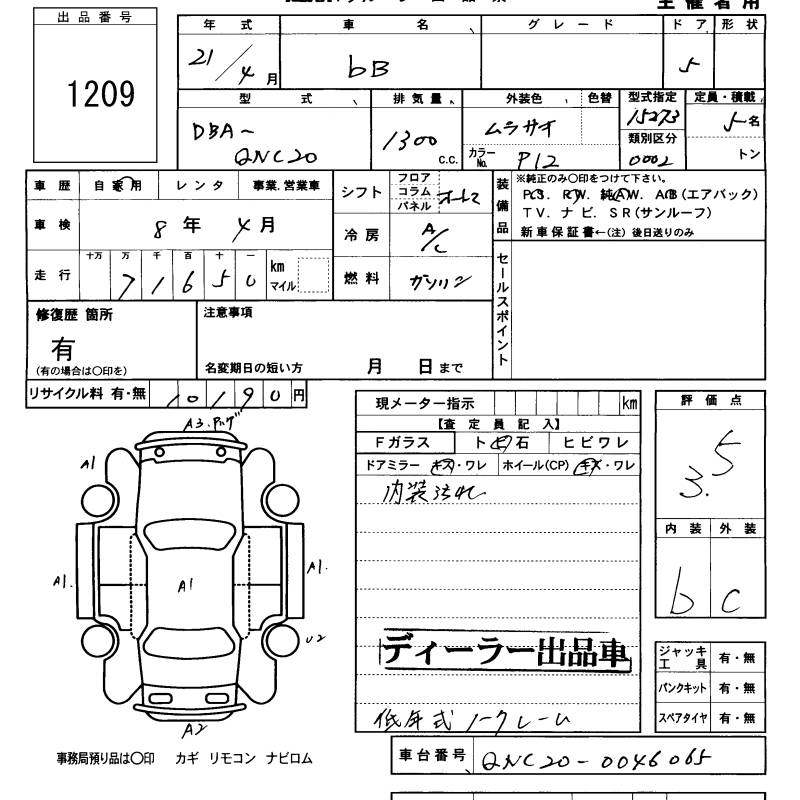 主催者用
出品番号
1209
年式 車名 グレード ドア 形状
21/4月 bB 5
型式 排気量 外装色 色替 型式指定 定員・積載
DBA～ QNC20 1300 C.C. ムラサイ 15273 5名
カラーNo. P12 類別区分 0002 トン
車歴 自家用 レンタ 事業.営業車
シフト フロア コラム パネル オートマ
装備品 ※純正のみ〇印をつけて下さい。
PS. RW. 純AW. AB(エアバック)
TV. ナビ. SR(サンルーフ)
新車保証書←(注) 後日送りのみ
車検 8年 4月
冷房 A/C
走行 十万 万 千 百 十 一 km マイル
71650
燃料 ガソリン
セールスポイント
修復歴 箇所
有
(有の場合は〇印を)
注意事項
名変期日の短い方 月 日まで
リサイクル料 有・無 10190円
現メーター指示 km
評価点
3.5
【査定員記入】
Fガラス ト ビ 石 ヒビワレ
ドアミラー キズ・ワレ ホイール(CP) キズ・ワレ
内装汚れ
内装 外装
b C
A1
A1.
A1
A1.
U2
A2
ディーラー出品車
低年式ノークレーム
ジャッキ工具 有・無
パンクキット 有・無
スペアタイヤ 有・無
事務局預り品は〇印 カギ リモコン ナビロム
車台番号 QNC20-0046065